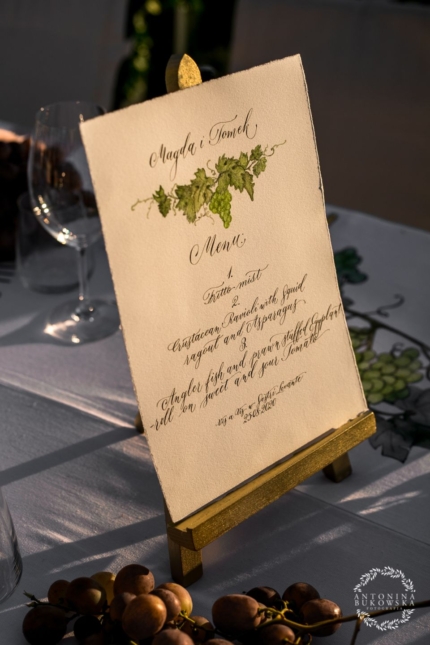 Magda i Tomek
Menu
1.
Fritto mist
2.
Crustacean Ravioli with Squid
ragout and Asparagus
3.
Angler fish and prawn stuffed Eggplant
roll on sweet and sour Tomato
Sestri Levante
ANTONINA
BUKOWSKA
FOTOGRAFIA